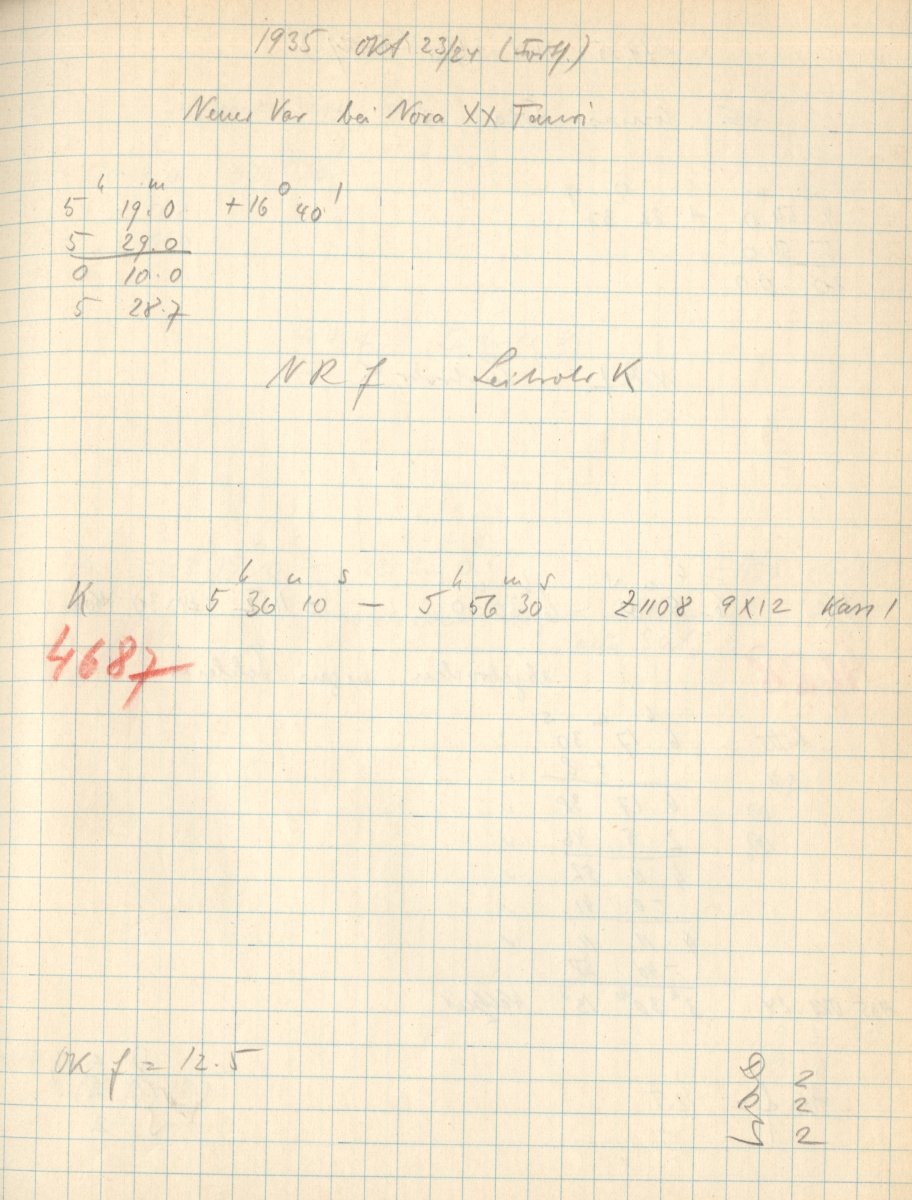 1935 Okt 23/24 (Forts.)
Neuer Var bei Nova XX Tauri
5h 19m.0 +16° 40'
5 29.0
0 10.0
5 28.7
NR f Leitrohr K
K 5h 36m 10s — 5h 56m 30s Z1108 9X12 Kass 1
4687
OK f = 12.5
2
2
2